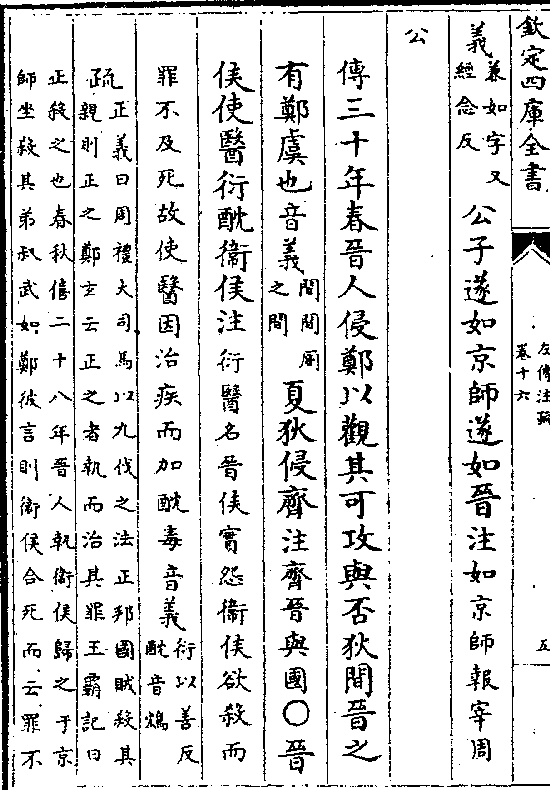 欽定四庫全書
左傳注疏
卷十六
五
義兼如字又
經念反
公子遂如京師遂如晉注如京師報宰周
公
傳三十年春晉人侵鄭以觀其可攻與否狄間晉之
有鄭虞也音義間間厠
之間
夏狄侵齊注齊晉與國○晉
侯使醫衍酖衞侯注衍醫名晉侯實怨衞侯欲殺而
罪不及死故使醫因治疾而加酖毒音義衍以善反
酖音鴆
疏正義曰周禮大司馬以九伐之法正邦國賊殺其
親則正之鄭玄云正之者執而治其罪王霸記曰
正殺之也春秋僖二十八年晉人執衞侯歸之于京
師坐殺其弟叔武如鄭彼言則衞侯合死而云罪不